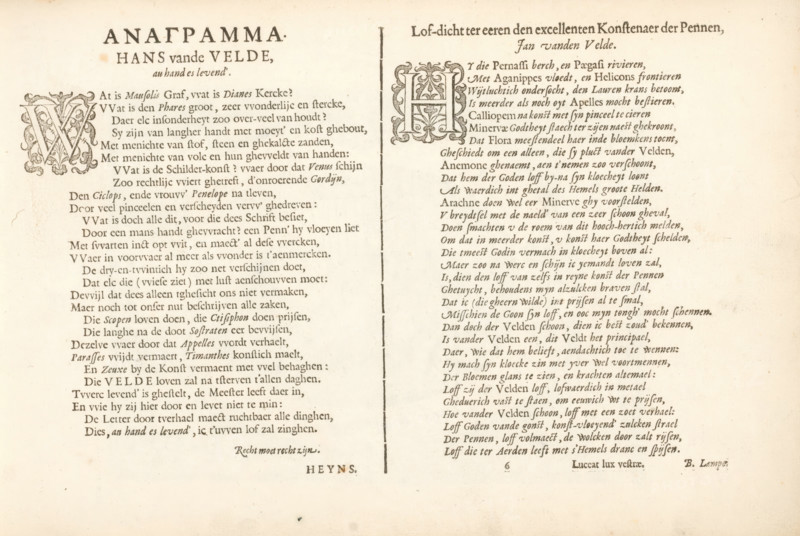 ΑΝΑΓΡΑΜΜΑ.
HANS vande VELDE,
an hand es levend'.
WAt is Mausolis Graf, vvat is Dianes Kercke?
VVat is den Phares groot, zeer vvonderlije en stercke,
Daer elc insonderheyt zoo over-veel van houdt?
Sy zijn van langher handt met moeyt' en kost ghebout,
Met menichte van stof, steen en ghekalckte zanden,
Met menichte van volc en hun ghevveldt van handen:
VVat is de Schilder-konst? vvaer door dat Venus schijn
Zoo rechtlijc vviert ghetreft, d'onroerende Gordijn,
Den Ciclops, ende vrouvv' Penelope na tleven,
Door veel pinceelen en verscheyden vervv' ghedreven:
VVat is doch alle dit, voor die dees Schrift besiet,
Door een mans handt ghevvracht? een Penn' hy vloeyen liet
Met svvarten inct opt vvit, en maect' al dese vvercken,
VVaer in voorvvaer al meer als vvonder is t'aenmercken.
De dry-en-tvvintich hy zoo net verschijnen doet,
Dat elc die (vviese ziet) met lust aenschouvven moet:
Devvijl dat dees alleen tghesicht ons niet vermaken,
Maer noch tot onser nut beschrijven alle zaken,
Die Scopen loven doen, die Ctisiphon doen prijsen,
Die langhe na de doot Sostraten eer bevvijsen,
Dezelve vvaer door dat Appelles vvordt verhaelt,
Parasses vvijdt vermaert, Timanthes konstich maelt,
En Zeuxe by de Konst vermaert met vvel behaghen:
Die VELDE loven zal na tsterven t'allen daghen.
Tvverc levend' is ghestelt, de Meester leeft daer in,
En vvie hy zij hier door en levet niet te min:
De Letter door tverhael maect ruchtbaer alle dinghen,
Dies, an hand es levend', ic t'uvven lof zal zinghen.
Recht moet recht zijn.
HEYNS.
Lof-dicht ter eeren den excellenten Konstenaer der Pennen,
Jan vanden Velde.
HY die Pernassi berch, en Pægasi rivieren,
Met Aganippes vloedt, en Helicons frontieren
Wijtluchtich ondersocht, den Lauren krans betoont,
Is meerder als noyt oyt Apelles mocht bestieren.
Calliopem na konst met syn pinceel te cieren
Minervæ Godtheyt staech ter zijen naest ghekroont,
Dat Flora meestendeel haer inde bloemkens toont,
Gheschiedt om een alleen, die sy pluct vander Velden,
Anemone ghenaemt, aen t'nemen zoo verschoont,
Dat hem der Goden loff by-na syn kloecheyt loont
Als Waerdich int ghetal des Hemels groote Helden.
Arachne doen Wel eer Minerve ghy voorstelden,
V breydtsel met de naeld' van een zeer schoon gheval,
Doen smachten v de roem van dit hooch-hertich melden,
Om dat in meerder konst, v konst haer Godtheyt schelden,
Die tmeest Godin vermach in kloecheyt boven al:
Maer zoo na Werc en schijn ic yemandt loven zal,
Is, dien den loff van zelfs in reyne konst der Pennen
Ghetuycht, behoudens myn alzulcken braven stal,
Dat ic (die gheern Wilde) int prijsen al te smal,
Misschien de Goon syn loff, en ooc myn tongh' mocht schennen.
Dan doch der Velden schoon, dien ic best zoud' bekennen,
Is vander Velden een, dit Veldt het principael,
Daer, Wie dat hem belieft, aendachtich toe te Wennen:
Hy mach syn kloecke zin met yver Wel voortmennen,
Der Bloemen glans te zien, en krachten altemael:
Loff zij der Velden loff, lofwaerdich in metael
Gheduerich vast te staen, om eeuwich Wt te prijsen,
Hoe vander Velden schoon, loff met een zoet verhael:
Loff Goden vande gonst, konst-vloeyend' zulcken strael
Der Pennen, loff volmaect, de Wolcken door zalt rijsen,
Loff die ter Aerden leeft met s'Hemels dranc en spijsen.
6
Luceat lux vestræ.
B. Lampe.